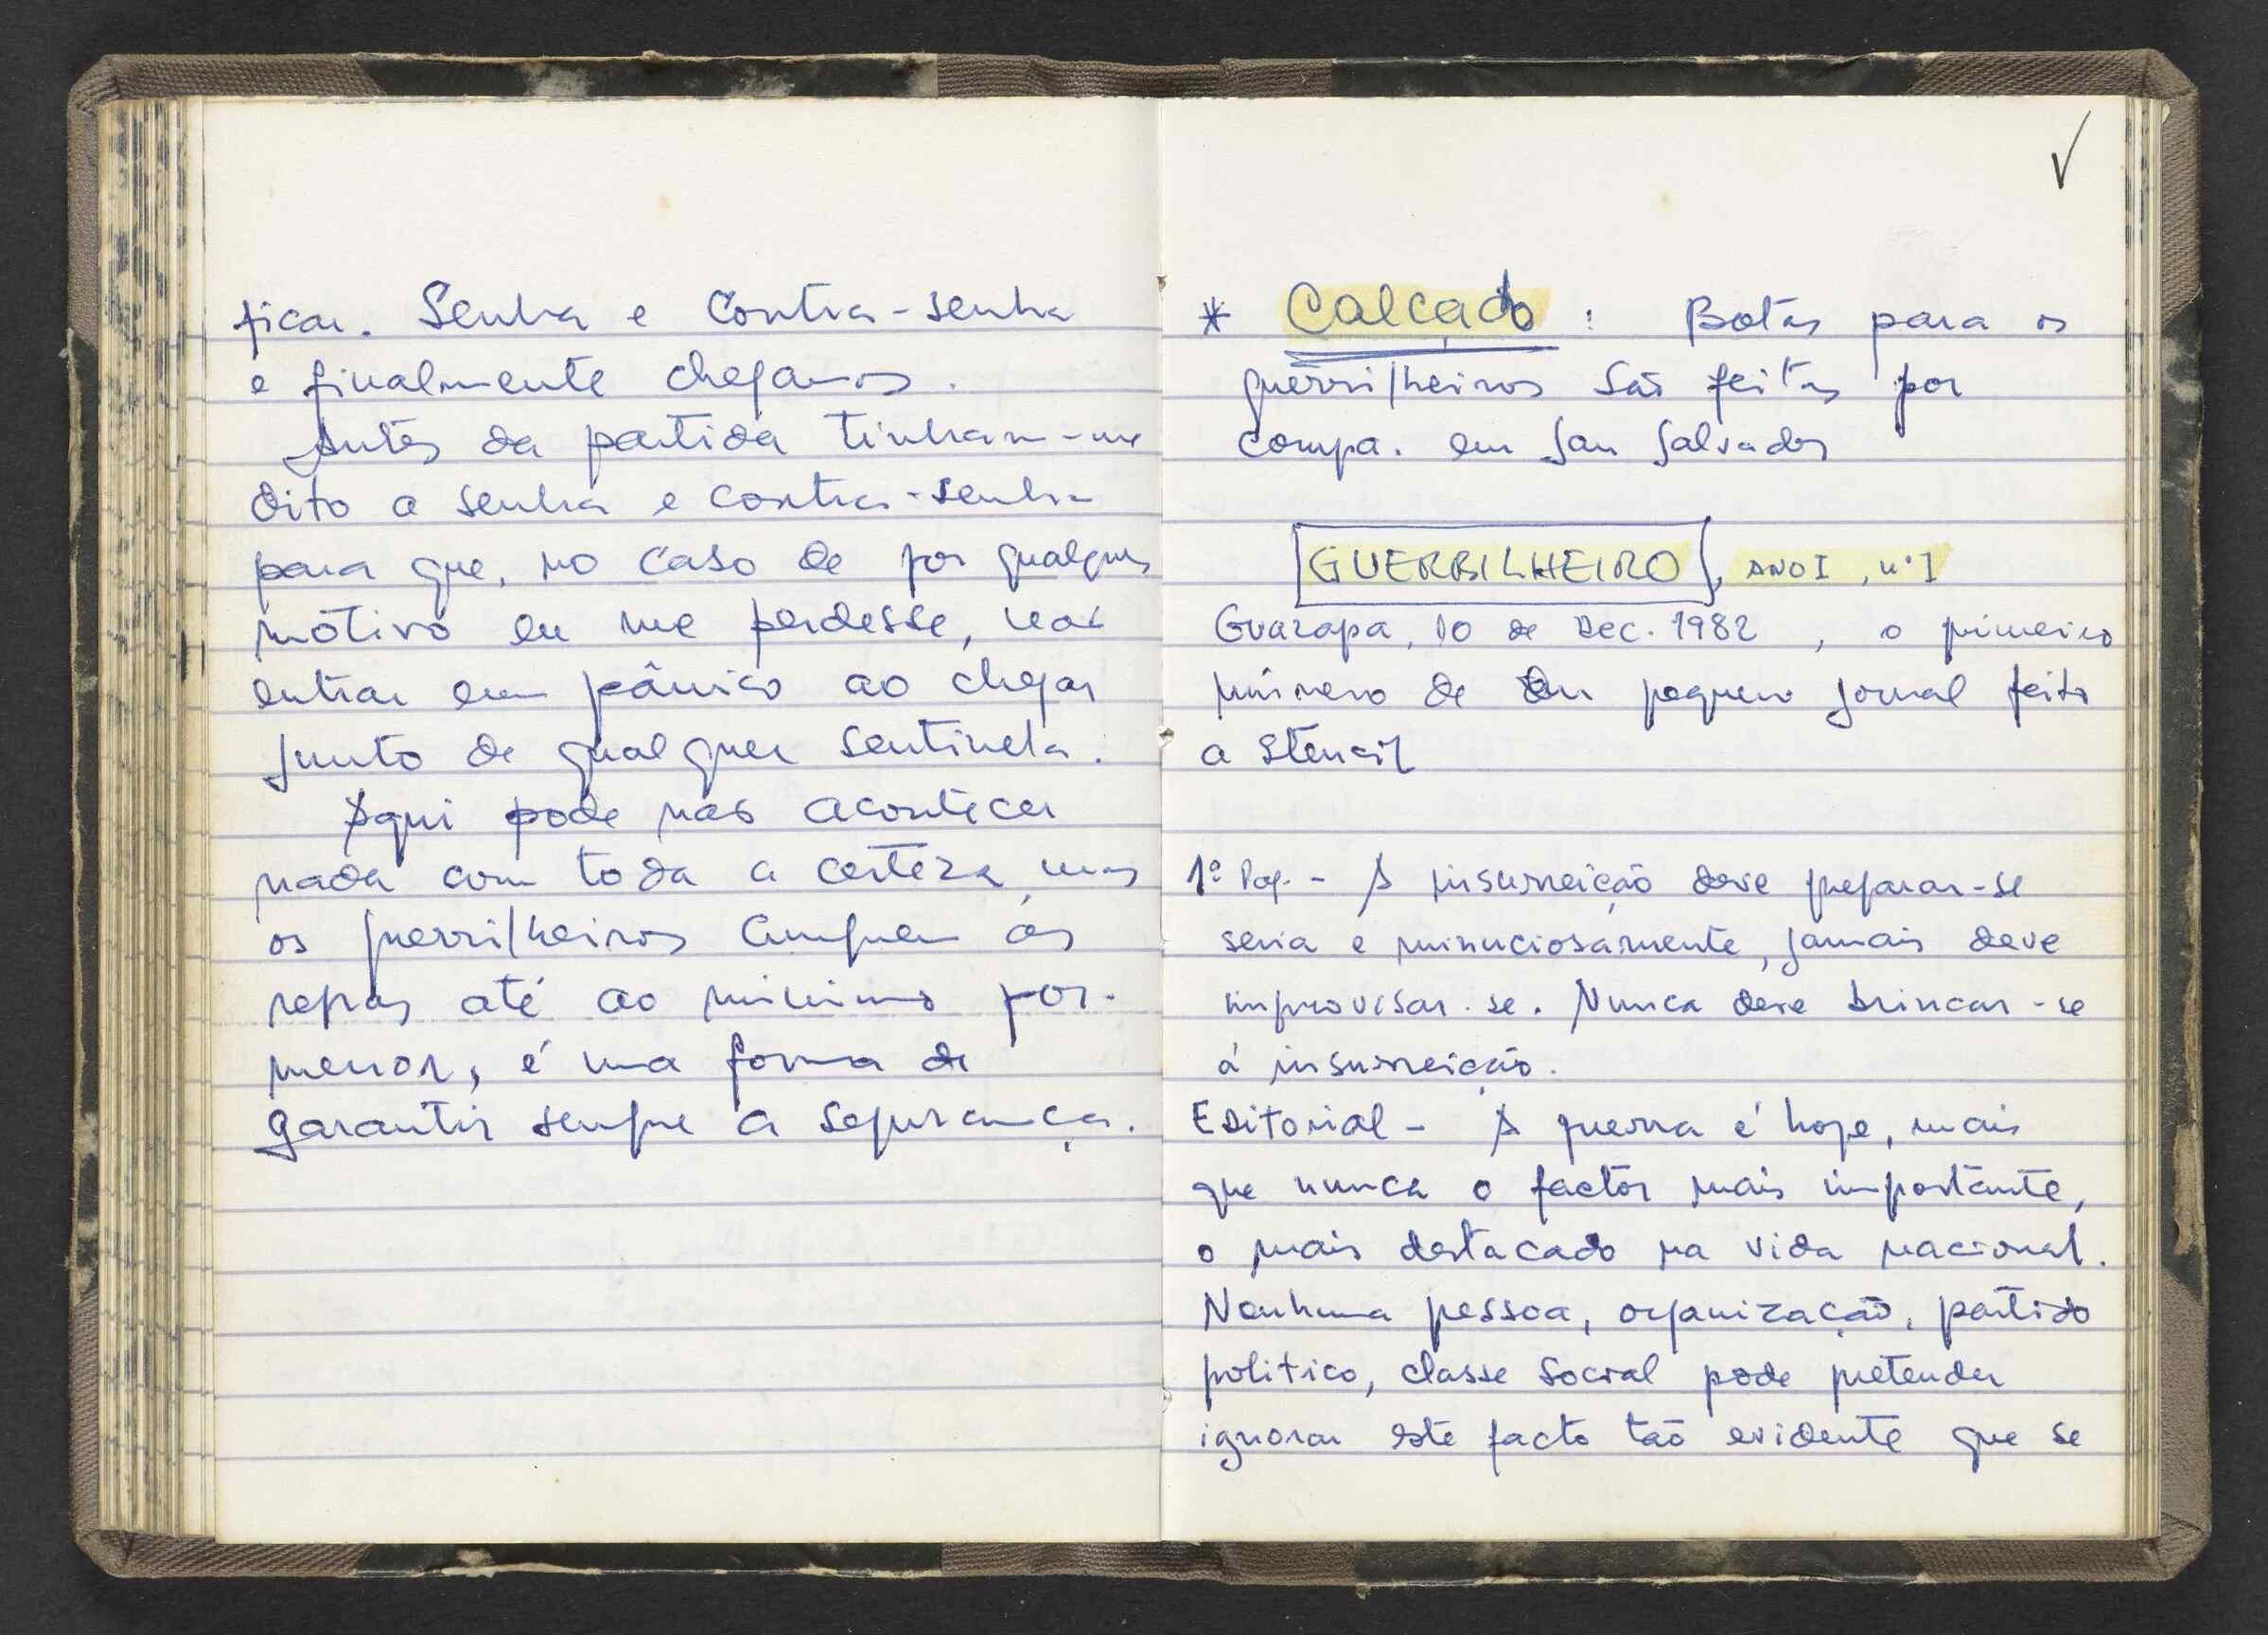 ficar. Senha e Contra-senha
e finalmente chegamos.
Antes da partida tinham-me
dito a senha e contra-senha
para que, no caso de por qualquer
motivo eu me perdesse, não
entrar em pânico ao chegar
junto de qualquer sentinela.
Aqui pode não acontecer
nada com toda a certeza, mas
os guerrilheiros cumprem as
regras até ao mínimo por-
menor, é uma forma de
garantir sempre a segurança.
√
* Calçado : Botas para os
guerrilheiros são feitas por
compa. em San Salvador
GUERRILHEIRO, ANO I, nº 1
Guazapa, 10 de Dec. 1982, o primeiro
número de um pequeno jornal feito
a stencil
1ª Pag. - A insurreição deve preparar-se
seria e minuciosamente, jamais deve
improvisar-se. Nunca deve brincar-se
á insurreição.
Editorial - A guerra é hoje, mais
que nunca o factor mais importante,
o mais destacado na vida nacional.
Nenhuma pessoa, organização, partido
politico, classe social pode pretender
ignorar este facto tão evidente que se